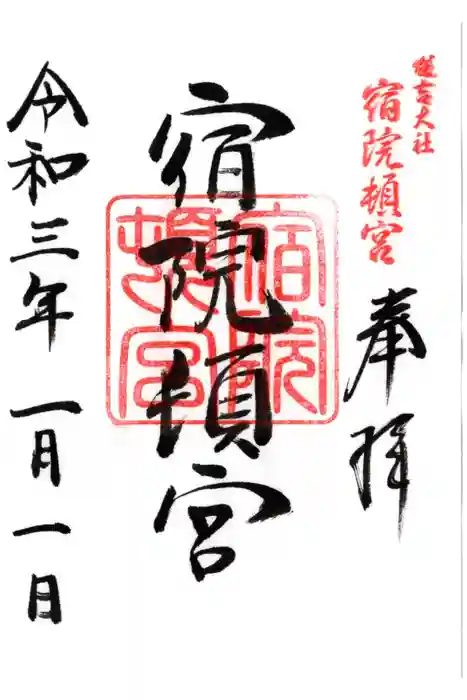 住吉大社
宿院頓宮
奉拝
宿院頓宮
宿院
頓宮
令和三年一月一日